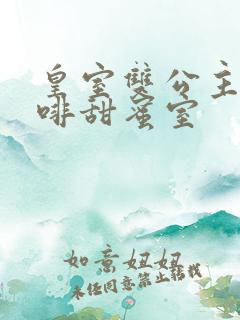 皇室雙公主
啡甜蜜室
如意妞妞
未经同意禁止转载